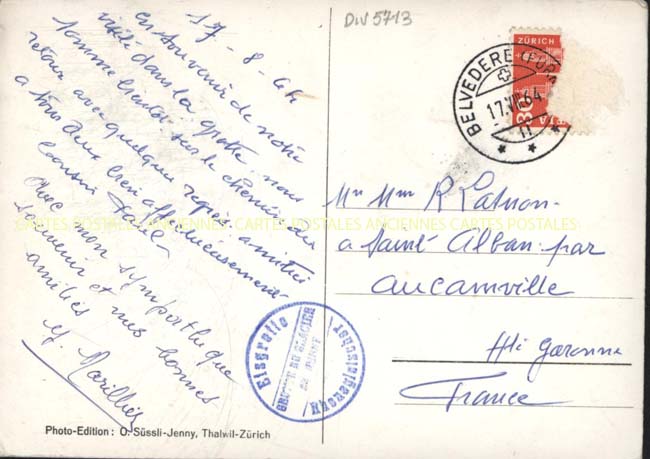 DW 5713
17-8-64
en souvenir de notre
visite dans la grotte. nous
sommes bientôt sur le chemin du
retour avec quelques regrets amitiés
a vous deux bien affectueusement
Cousin
Avec mon sympathique
souvenir et mes bonnes
amitiés
ZÜRICH
BELVEDERE (FURKA)
17.VIII.64
Mr Mme R Latnon
a Saint Alban par
aucamville
Hte Garonne
France
CARTES POSTALES ANCIENNES CARTES POSTALES ANCIENNES CARTES POSTALES
Eisgrotte
GROTTE DU GLACIER
DU RHONE
Rhonegletscher
Photo-Edition: O. Süssli-Jenny, Thalwil-Zürich